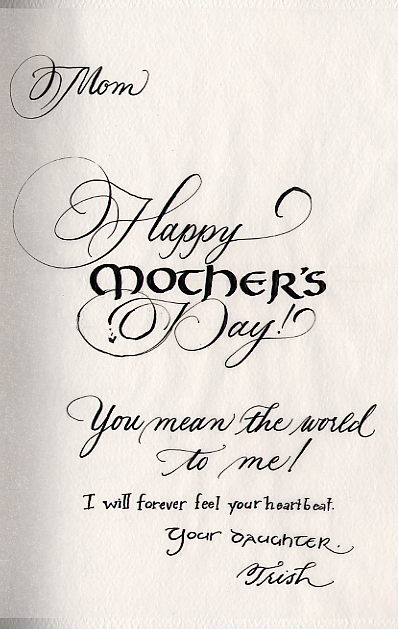 Mom
Happy
MOTHER'S
Day!
You mean the world
to me!
I will forever feel your heartbeat.
Your DAUGHTER.
Trish